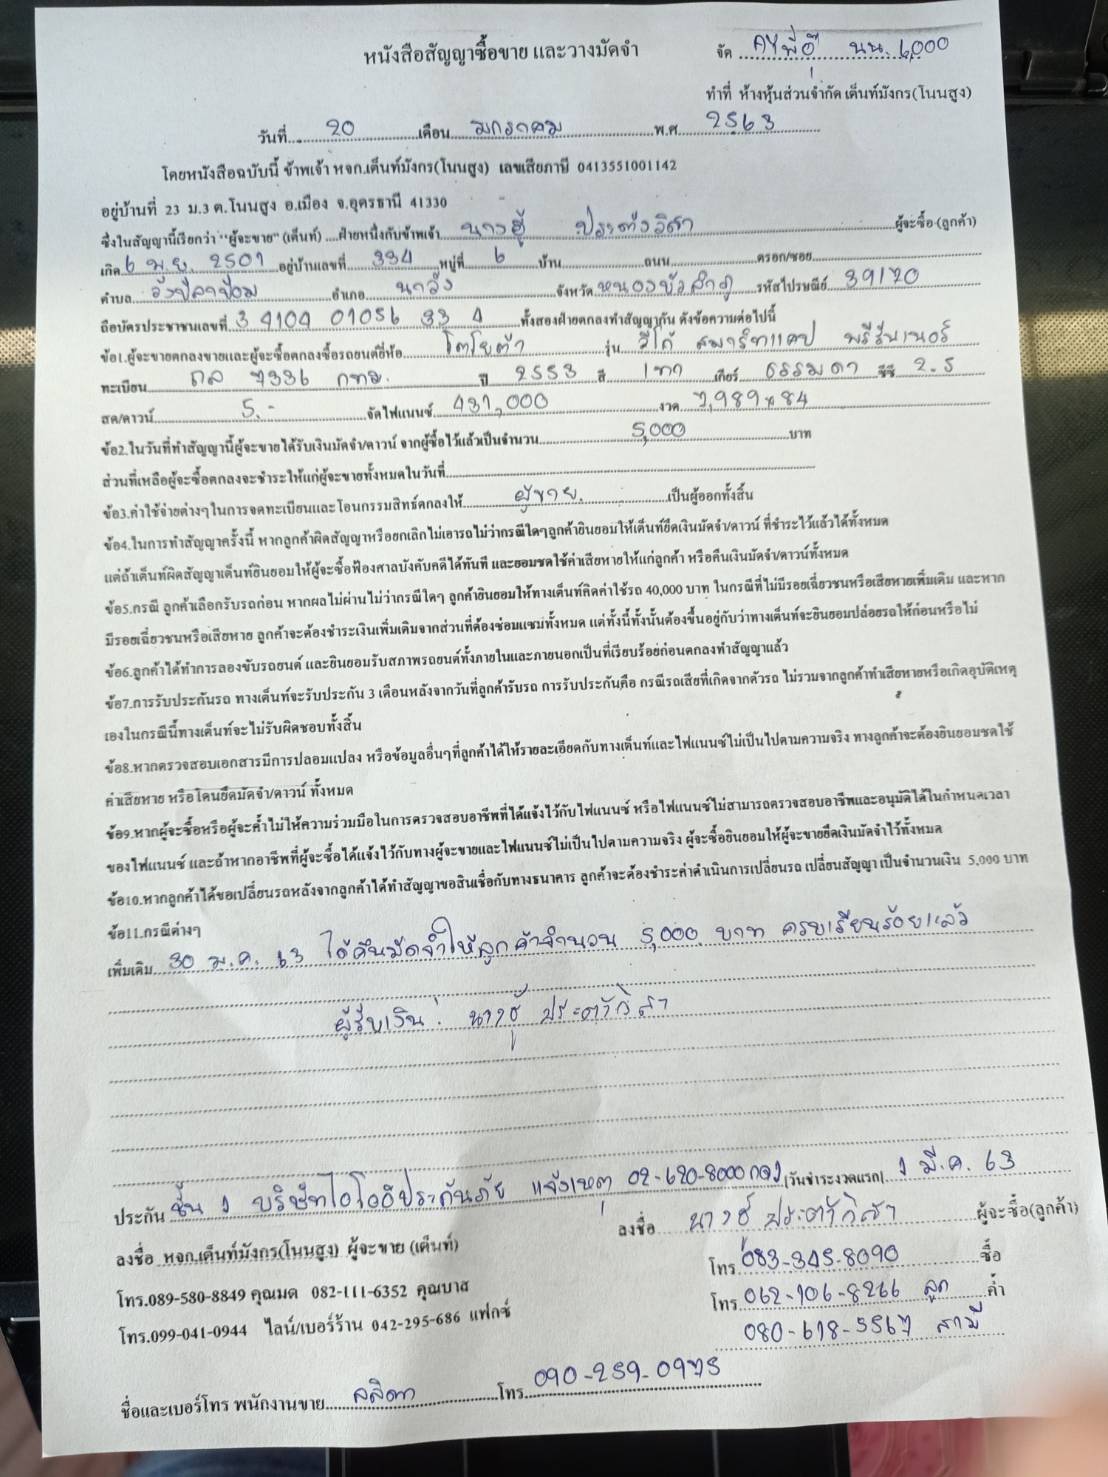 หนังสือสัญญาซื้อขาย และวางมัดจำ
จัด AY พี่อุ๊ นน. 6,000
ทำที่ ห้างหุ้นส่วนจำกัด เต็นท์มังกร(โนนสูง)
วันที่ 20 เดือน มกราคม พ.ศ. 2563
โดยหนังสือฉบับนี้ ข้าพเจ้า หจก.เต็นท์มังกร(โนนสูง) เลขเสียภาษี 0413551001142
อยู่บ้านที่ 23 ม.3 ต.โนนสูง อ.เมือง จ.อุดรธานี 41330
ซึ่งในสัญญานี้เรียกว่า "ผู้จะขาย" (เต็นท์) ....ฝ่ายหนึ่งกับข้าพเจ้า นาง ผู้จะซื้อ (ลูกค้า)
เกิด 6 พ.ย. 2501 อยู่บ้านเลขที่ 334 หมู่ที่ 6 บ้าน ถนน ตรอก/ซอย
ตำบล วังปลาป้อม อำเภอ นาวัง จังหวัด หนองบัวลำภู รหัสไปรษณีย์ 39170
ถือบัตรประชาชนเลขที่ 3 4104 01056 33 4 ทั้งสองฝ่ายตกลงทำสัญญากัน ดังข้อความต่อไปนี้
ข้อ1.ผู้จะขายตกลงขายและผู้จะซื้อตกลงซื้อรถยนต์ยี่ห้อ โตโยต้า รุ่น วีโก้ สมาร์ทแคป พรีรันเนอร์
ทะเบียน ถล 7336 กทม. ปี 2553 สี เทา เกียร์ ธรรมดา ซีซี 2.5
สด/ดาวน์ 5.- จัดไฟแนนซ์ 431,000 งวด 7,989 x 84
ข้อ2.ในวันที่ทำสัญญานี้ผู้จะขายได้รับเงินมัดจำ/ดาวน์ จากผู้ซื้อไว้แล้วเป็นจำนวน 5,000 บาท
ส่วนที่เหลือผู้จะซื้อตกลงจะชำระให้แก่ผู้จะขายทั้งหมดในวันที่
ข้อ3.ค่าใช้จ่ายต่างๆในการจดทะเบียนและโอนกรรมสิทธิ์ตกลงให้ ผู้ขาย เป็นผู้ออกทั้งสิ้น
ข้อ4.ในการทำสัญญาครั้งนี้ หากลูกค้าผิดสัญญาหรือยกเลิกไม่เอารถไม่ว่ากรณีใดๆลูกค้ายินยอมให้เต็นท์ยึดเงินมัดจำ/ดาวน์ ที่ชำระไว้แล้วได้ทั้งหมด
แต่ถ้าเต็นท์ผิดสัญญาเต็นท์ยินยอมให้ผู้จะซื้อฟ้องศาลบังคับคดีได้ทันที และยอมชดใช้ค่าเสียหายให้แก่ลูกค้า หรือคืนเงินมัดจำ/ดาวน์ทั้งหมด
ข้อ5.กรณี ลูกค้าเลือกรับรถก่อน หากผลไม่ผ่านไม่ว่ากรณีใดๆ ลูกค้ายินยอมให้ทางเต็นท์คิดค่าใช้รถ 40,000 บาท ในกรณีที่ไม่มีรอยเฉี่ยวชนหรือเสียหายเพิ่มเติม และหาก
มีรอยเฉี่ยวชนหรือเสียหาย ลูกค้าจะต้องชำระเงินเพิ่มเติมจากส่วนที่ต้องซ่อมแซมทั้งหมด แต่ทั้งนี้ทั้งนั้นต้องขึ้นอยู่กับว่าทางเต็นท์จะยินยอมปล่อยรถให้ก่อนหรือไม่
ข้อ6.ลูกค้าได้ทำการลองขับรถยนต์ และยินยอมรับสภาพรถยนต์ทั้งภายในและภายนอกเป็นที่เรียบร้อยก่อนตกลงทำสัญญาแล้ว
ข้อ7.การรับประกันรถ ทางเต็นท์จะรับประกัน 3 เดือนหลังจากวันที่ลูกค้ารับรถ การรับประกันคือ กรณีรถเสียที่เกิดจากตัวรถ ไม่รวมจากลูกค้าทำเสียหายหรือเกิดอุบัติเหตุ
เองในกรณีนี้ทางเต็นท์จะไม่รับผิดชอบทั้งสิ้น
ข้อ8.หากตรวจสอบเอกสารมีการปลอมแปลง หรือข้อมูลอื่นๆที่ลูกค้าได้ให้รายละเอียดกับทางเต็นท์และไฟแนนซ์ไม่เป็นไปตามความจริง ทางลูกค้าจะต้องยินยอมชดใช้
ค่าเสียหาย หรือโดนยึดมัดจำ/ดาวน์ ทั้งหมด
ข้อ9.หากผู้จะซื้อหรือผู้จะค้ำไม่ให้ความร่วมมือในการตรวจสอบอาชีพที่ได้แจ้งไว้กับไฟแนนซ์ หรือไฟแนนซ์ไม่สามารถตรวจสอบอาชีพและอนุมัติได้ในกำหนดเวลา
ของไฟแนนซ์ และถ้าหากอาชีพที่ผู้จะซื้อได้แจ้งไว้กับทางผู้จะขายและไฟแนนซ์ไม่เป็นไปตามความจริง ผู้จะซื้อยินยอมให้ผู้จะขายยึดเงินมัดจำไว้ทั้งหมด
ข้อ10.หากลูกค้าได้ขอเปลี่ยนรถหลังจากลูกค้าได้ทำสัญญาขอสินเชื่อกับทางธนาคาร ลูกค้าจะต้องชำระค่าดำเนินการเปลี่ยนรถ เปลี่ยนสัญญา เป็นจำนวนเงิน 5,000 บาท
ข้อ11.กรณีต่างๆ
เพิ่มเติม 30 ม.ค. 63 ได้คืนมัดจำให้ลูกค้าจำนวน 5,000 บาท ครบเรียบร้อยแล้ว
ผู้รับเงิน : นาง
ประกัน ชั้น 1 บริษัทไอโออิประกันภัย แจ้งเหตุ 02-620-8000 กด1 [วันชำระงวดแรก] 1 มี.ค. 63
ลงชื่อ หจก.เต็นท์มังกร(โนนสูง) ผู้จะขาย (เต็นท์) ลงชื่อ นาง ผู้จะซื้อ(ลูกค้า)
โทร.089-580-8849 คุณมด 082-111-6352 คุณบาส โทร. 083-345-8090 ซื้อ
โทร.099-041-0944 ไลน์/เบอร์ร้าน 042-295-686 แฟกซ์ โทร 062-106-8266 ลูก ค้ำ
080-618-5567 สามี
ชื่อและเบอร์โทร พนักงานขาย ลลิตา โทร. 090-259-0975